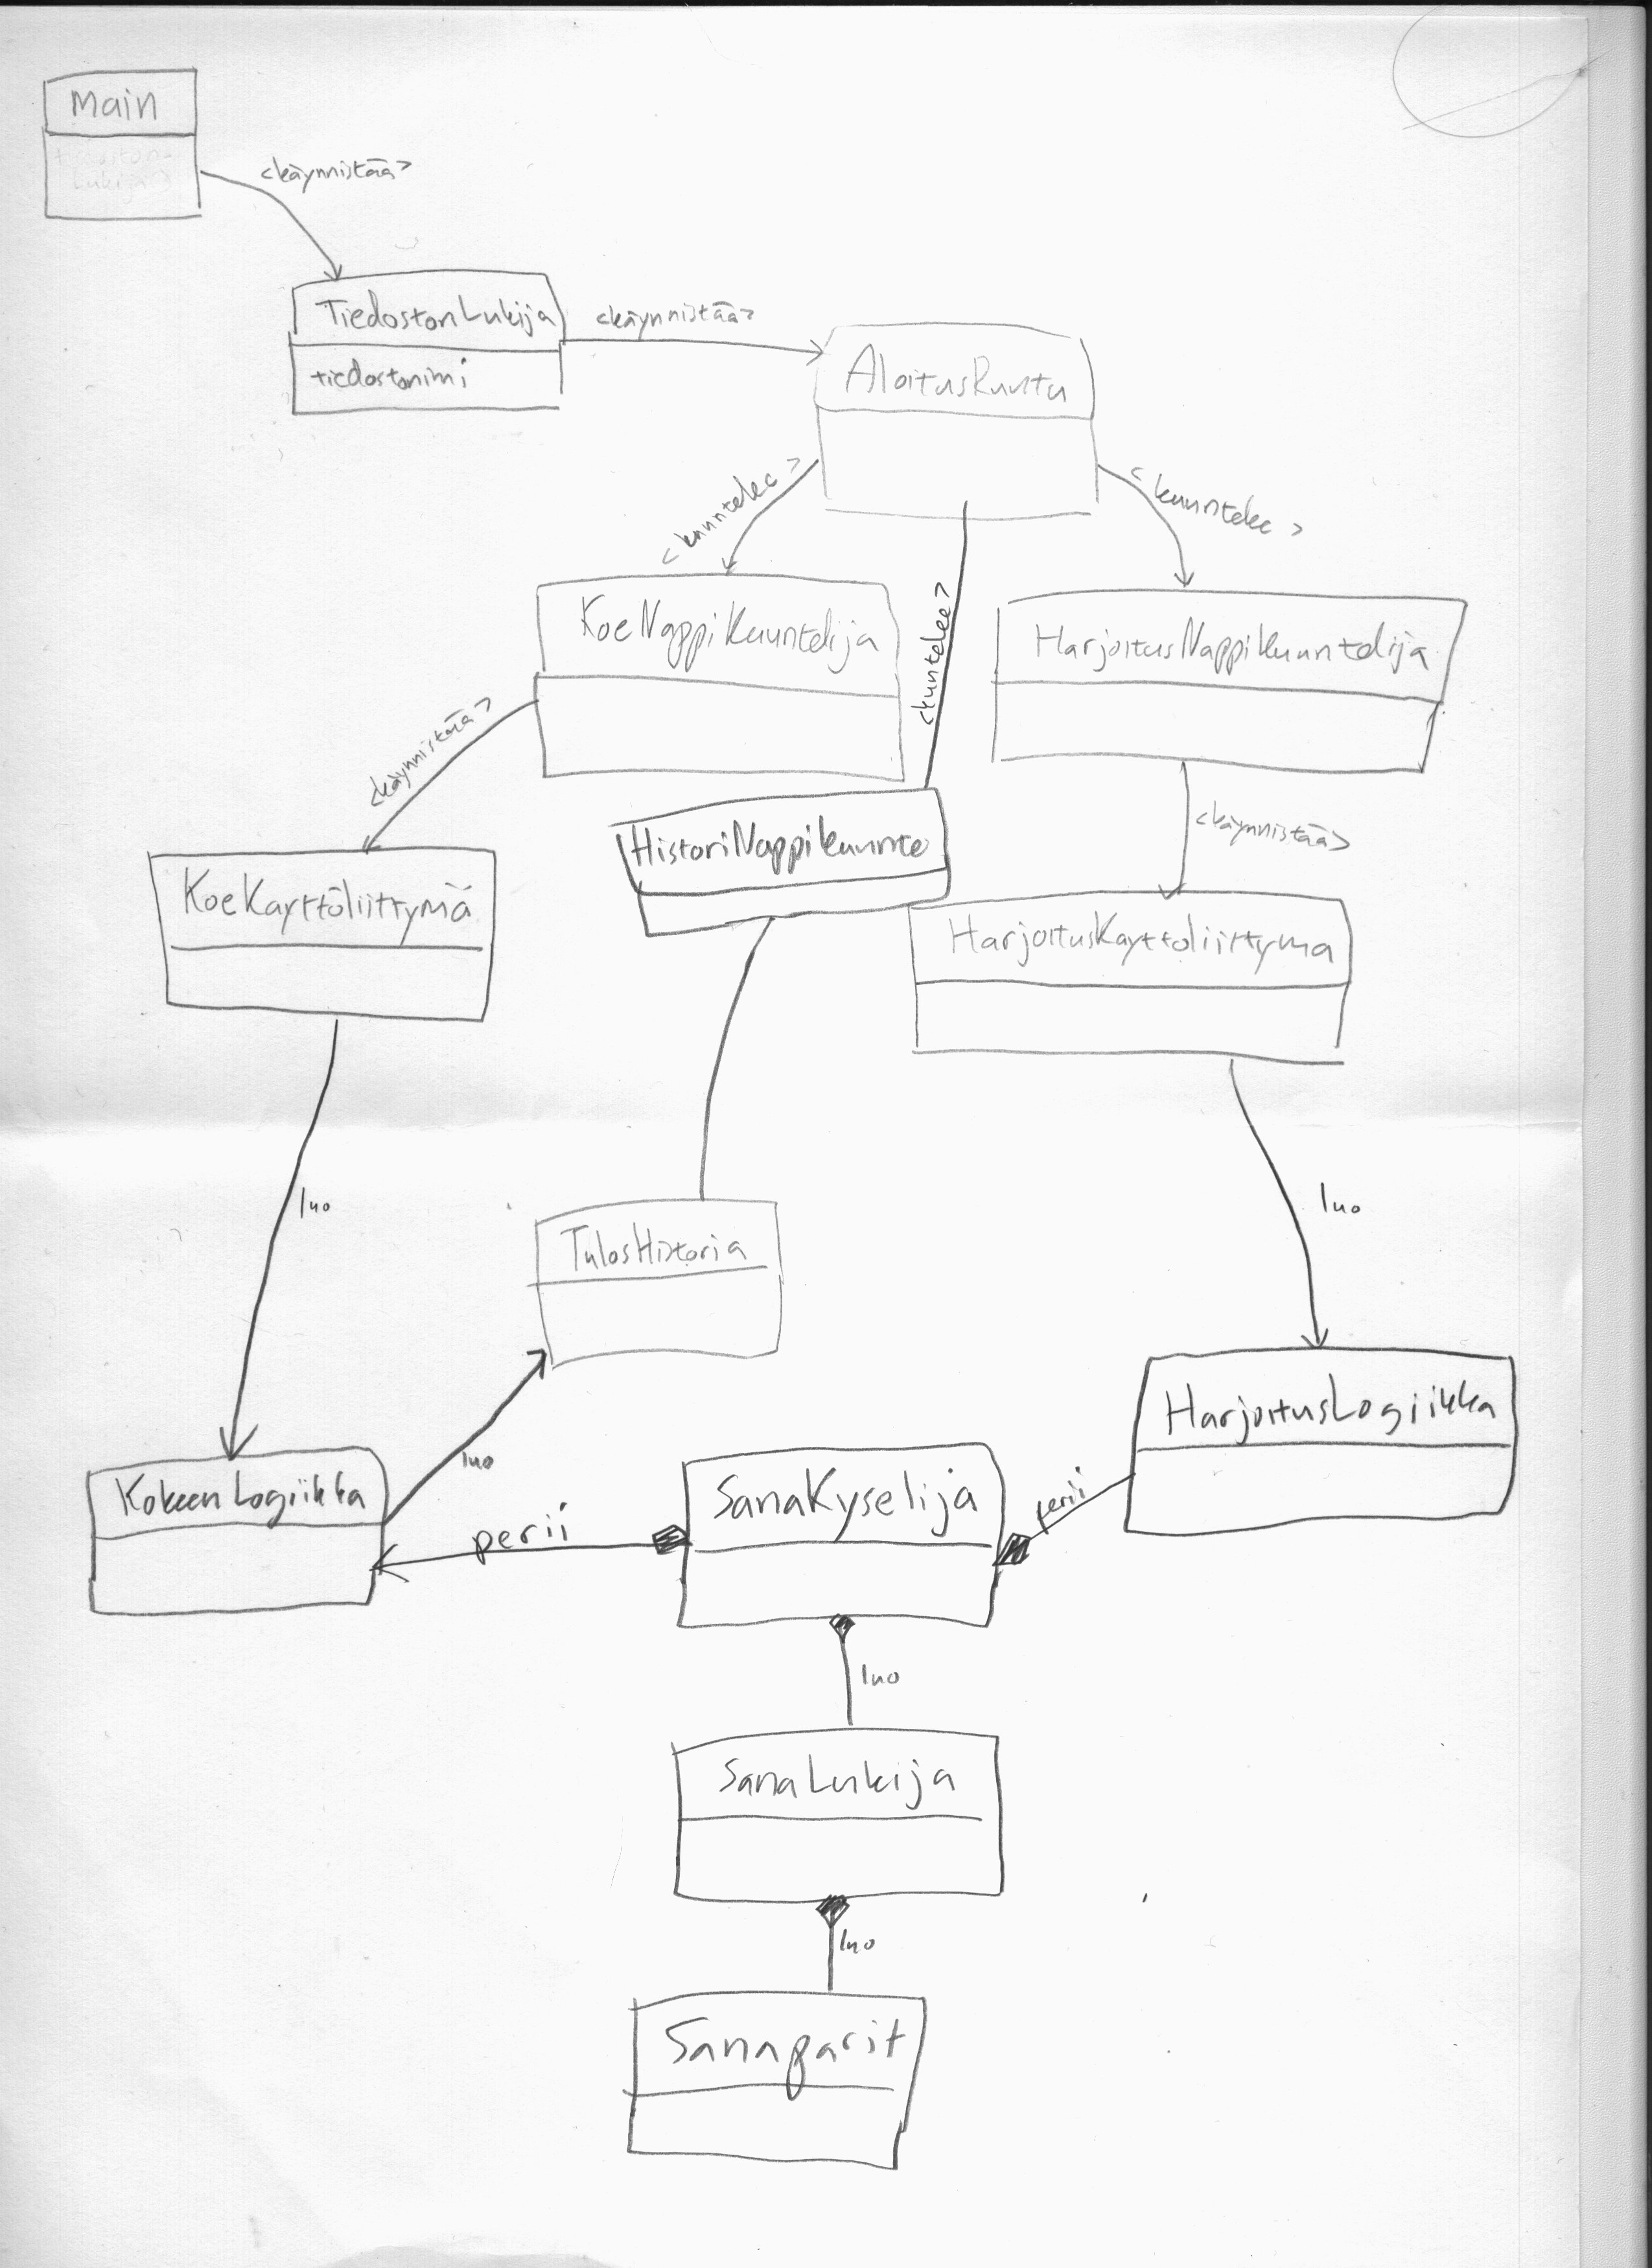 Main
tiedoston-
Lukija
<käynnistää>
TiedostonLukija
tiedostonimi
<käynnistää>
AloitusRuutu
<kuuntelee>
<kuuntelee>
<kuntelee>
KoeNappiKuuntelija
HarjoitusNappiKuuntelija
<käynnistää>
HistoriNappikuunte
<käynnistää>
KoeKayttöliittymä
HarjoitusKayttoliittyma
luo
luo
TulosHistoria
HarjoitusLogiikka
luo
KokeenLogiikka
perii
SanaKyselijä
perii
luo
SanaLukija
luo
Sanaparit